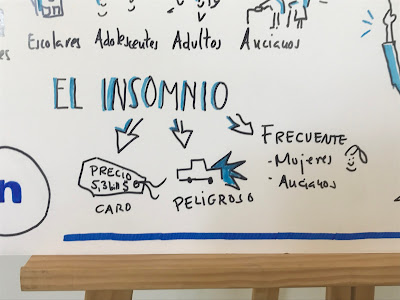 Escolares Adolescentes Adultos Ancianos
EL INSOMNIO
PRECIO
5,3 bill $
CARO
PELIGROSO
FRECUENTE
- Mujeres
- Ancianos